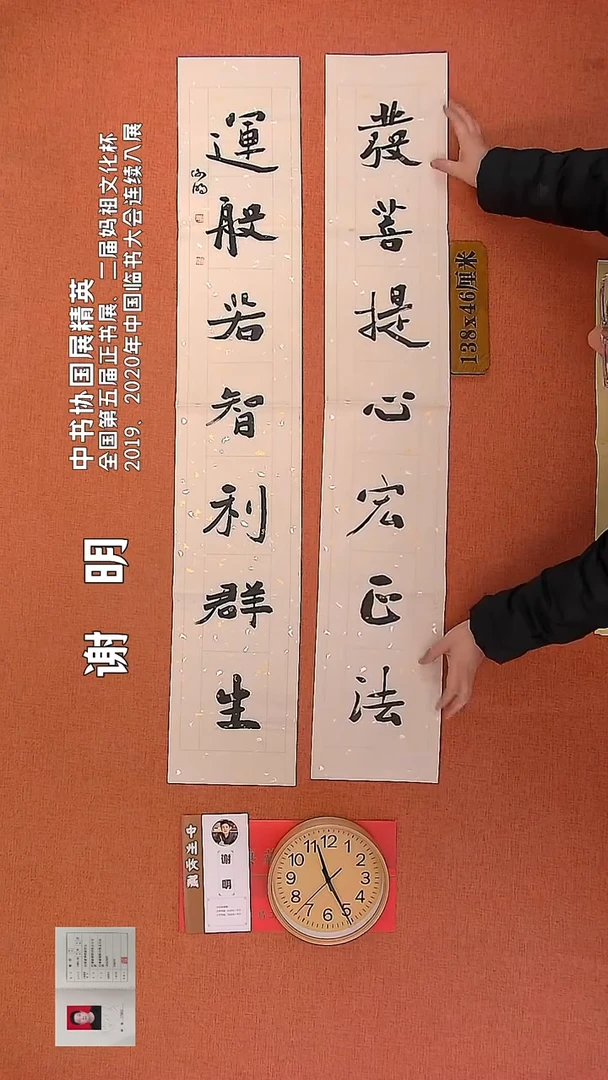 發菩提心宏正法
運般若智利群生
138x46厘米
中书协国展精英
全国第五届正书展、二届妈祖文化杯
2019、2020年中国临书大会连续入展
谢 明
谢 明
12
1
2
3
4
5
6
7
8
9
10
11